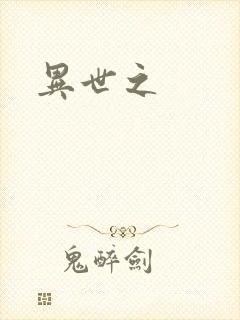 異世之
鬼醉劍